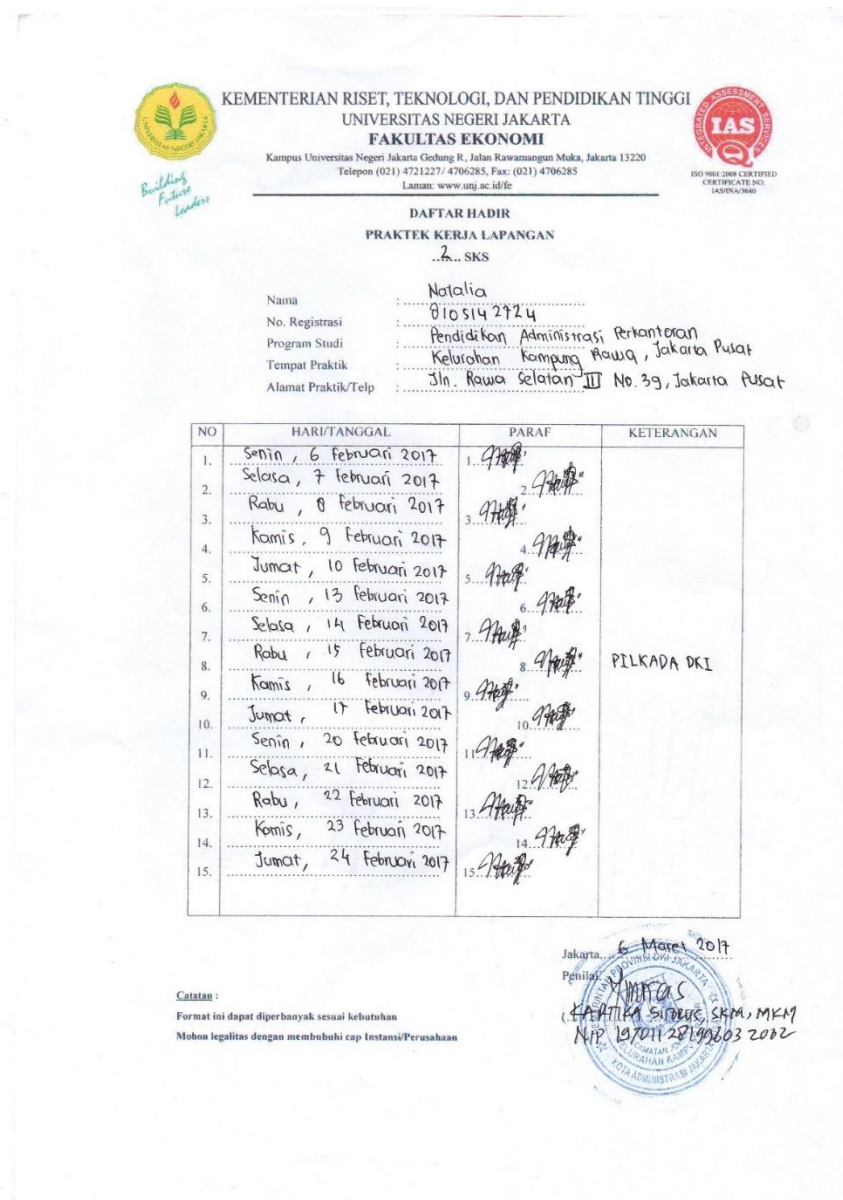 KEMENTERIAN RISET, TEKNOLOGI, DAN PENDIDIKAN TINGGI
UNIVERSITAS NEGERI JAKARTA
FAKULTAS EKONOMI
Kampus Universitas Negeri Jakarta Gedung R, Jalan Rawamangun Muka, Jakarta 13220
Telepon (021) 4721227/ 4706285, Fax: (021) 4706285
Laman: www.unj.ac.id/fe
UNIVERSITAS NEGERI JAKARTA
Building
Future
Leaders
INTEGRATED ASSESSMENT SERVICES
IAS
ISO 9001:2008 CERTIFIED
CERTIFICATE NO:
IAS/INA/3640
DAFTAR HADIR
PRAKTEK KERJA LAPANGAN
..2... SKS
Nama : Natalia
No. Registrasi : 8105142724
Program Studi : Pendidikan Administrasi Perkantoran
Tempat Praktik : Kelurahan Kampung Rawa, Jakarta Pusat
Alamat Praktik/Telp : Jln. Rawa Selatan III No. 39, Jakarta Pusat
NO HARI/TANGGAL PARAF KETERANGAN
1. Senin, 6 Februari 2017 1.
2. Selasa, 7 Februari 2017 2.
3. Rabu, 8 Februari 2017 3.
4. Kamis, 9 Februari 2017 4.
5. Jumat, 10 Februari 2017 5.
6. Senin, 13 Februari 2017 6.
7. Selasa, 14 Februari 2017 7.
8. Rabu, 15 Februari 2017 8. PILKADA DKI
9. Kamis, 16 Februari 2017 9.
10. Jumat, 17 Februari 2017 10.
11. Senin, 20 Februari 2017 11.
12. Selasa, 21 Februari 2017 12.
13. Rabu, 22 Februari 2017 13.
14. Kamis, 23 Februari 2017 14.
15. Jumat, 24 Februari 2017 15.
Jakarta, 6 Maret 2017
Penilai
KARTIKA SKM, MKM
NIP.
KOTA ADMINISTRASI JAKARTA
Catatan :
Format ini dapat diperbanyak sesuai kebutuhan
Mohon legalitas dengan membubuhi cap Instansi/Perusahaan